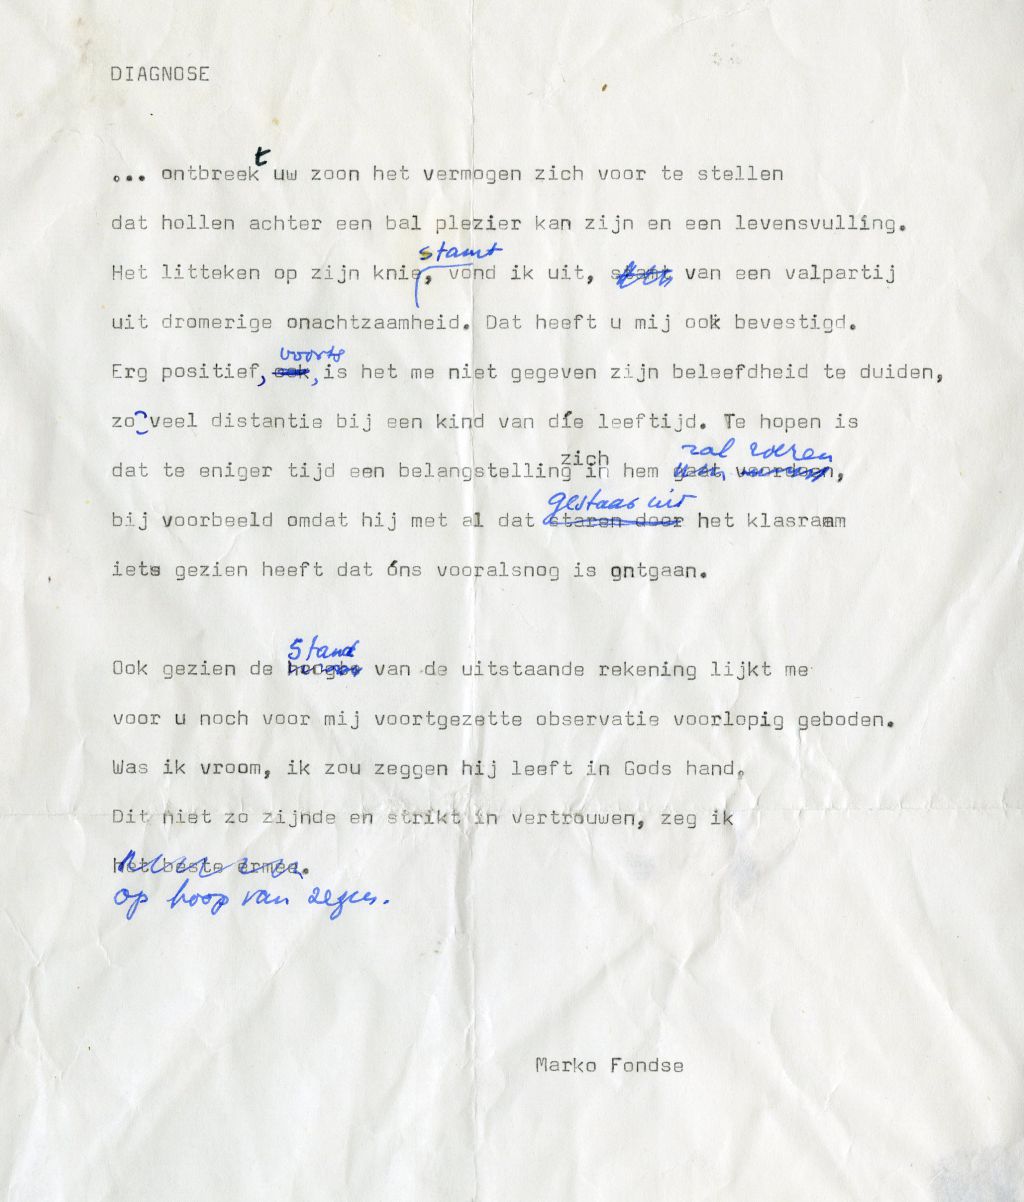 DIAGNOSE
t
... ontbreek uw zoon het vermogen zich voor te stellen
dat hollen achter een bal plezier kan zijn en een levensvulling.
stamt
Het litteken op zijn knie, vond ik uit, stamt van een valpartij
uit dromerige onachtzaamheid. Dat heeft u mij ook bevestigd.
voorts
Erg positief, ook, is het me niet gegeven zijn beleefdheid te duiden,
zo veel distantie bij een kind van díe leeftijd. Te hopen is
zich zal roeren
dat te eniger tijd een belangstelling in hem gaat voordoen,
gestaar uit
bij voorbeeld omdat hij met al dat staren door het klasraam
iets gezien heeft dat óns vooralsnog is ontgaan.
Stand
Ook gezien de hoogte van de uitstaande rekening lijkt me
voor u noch voor mij voortgezette observatie voorlopig geboden.
Was ik vroom, ik zou zeggen hij leeft in Gods hand.
Dit niet zo zijnde en strikt in vertrouwen, zeg ik
het beste ermee.
op hoop van zegen.
Marko Fondse